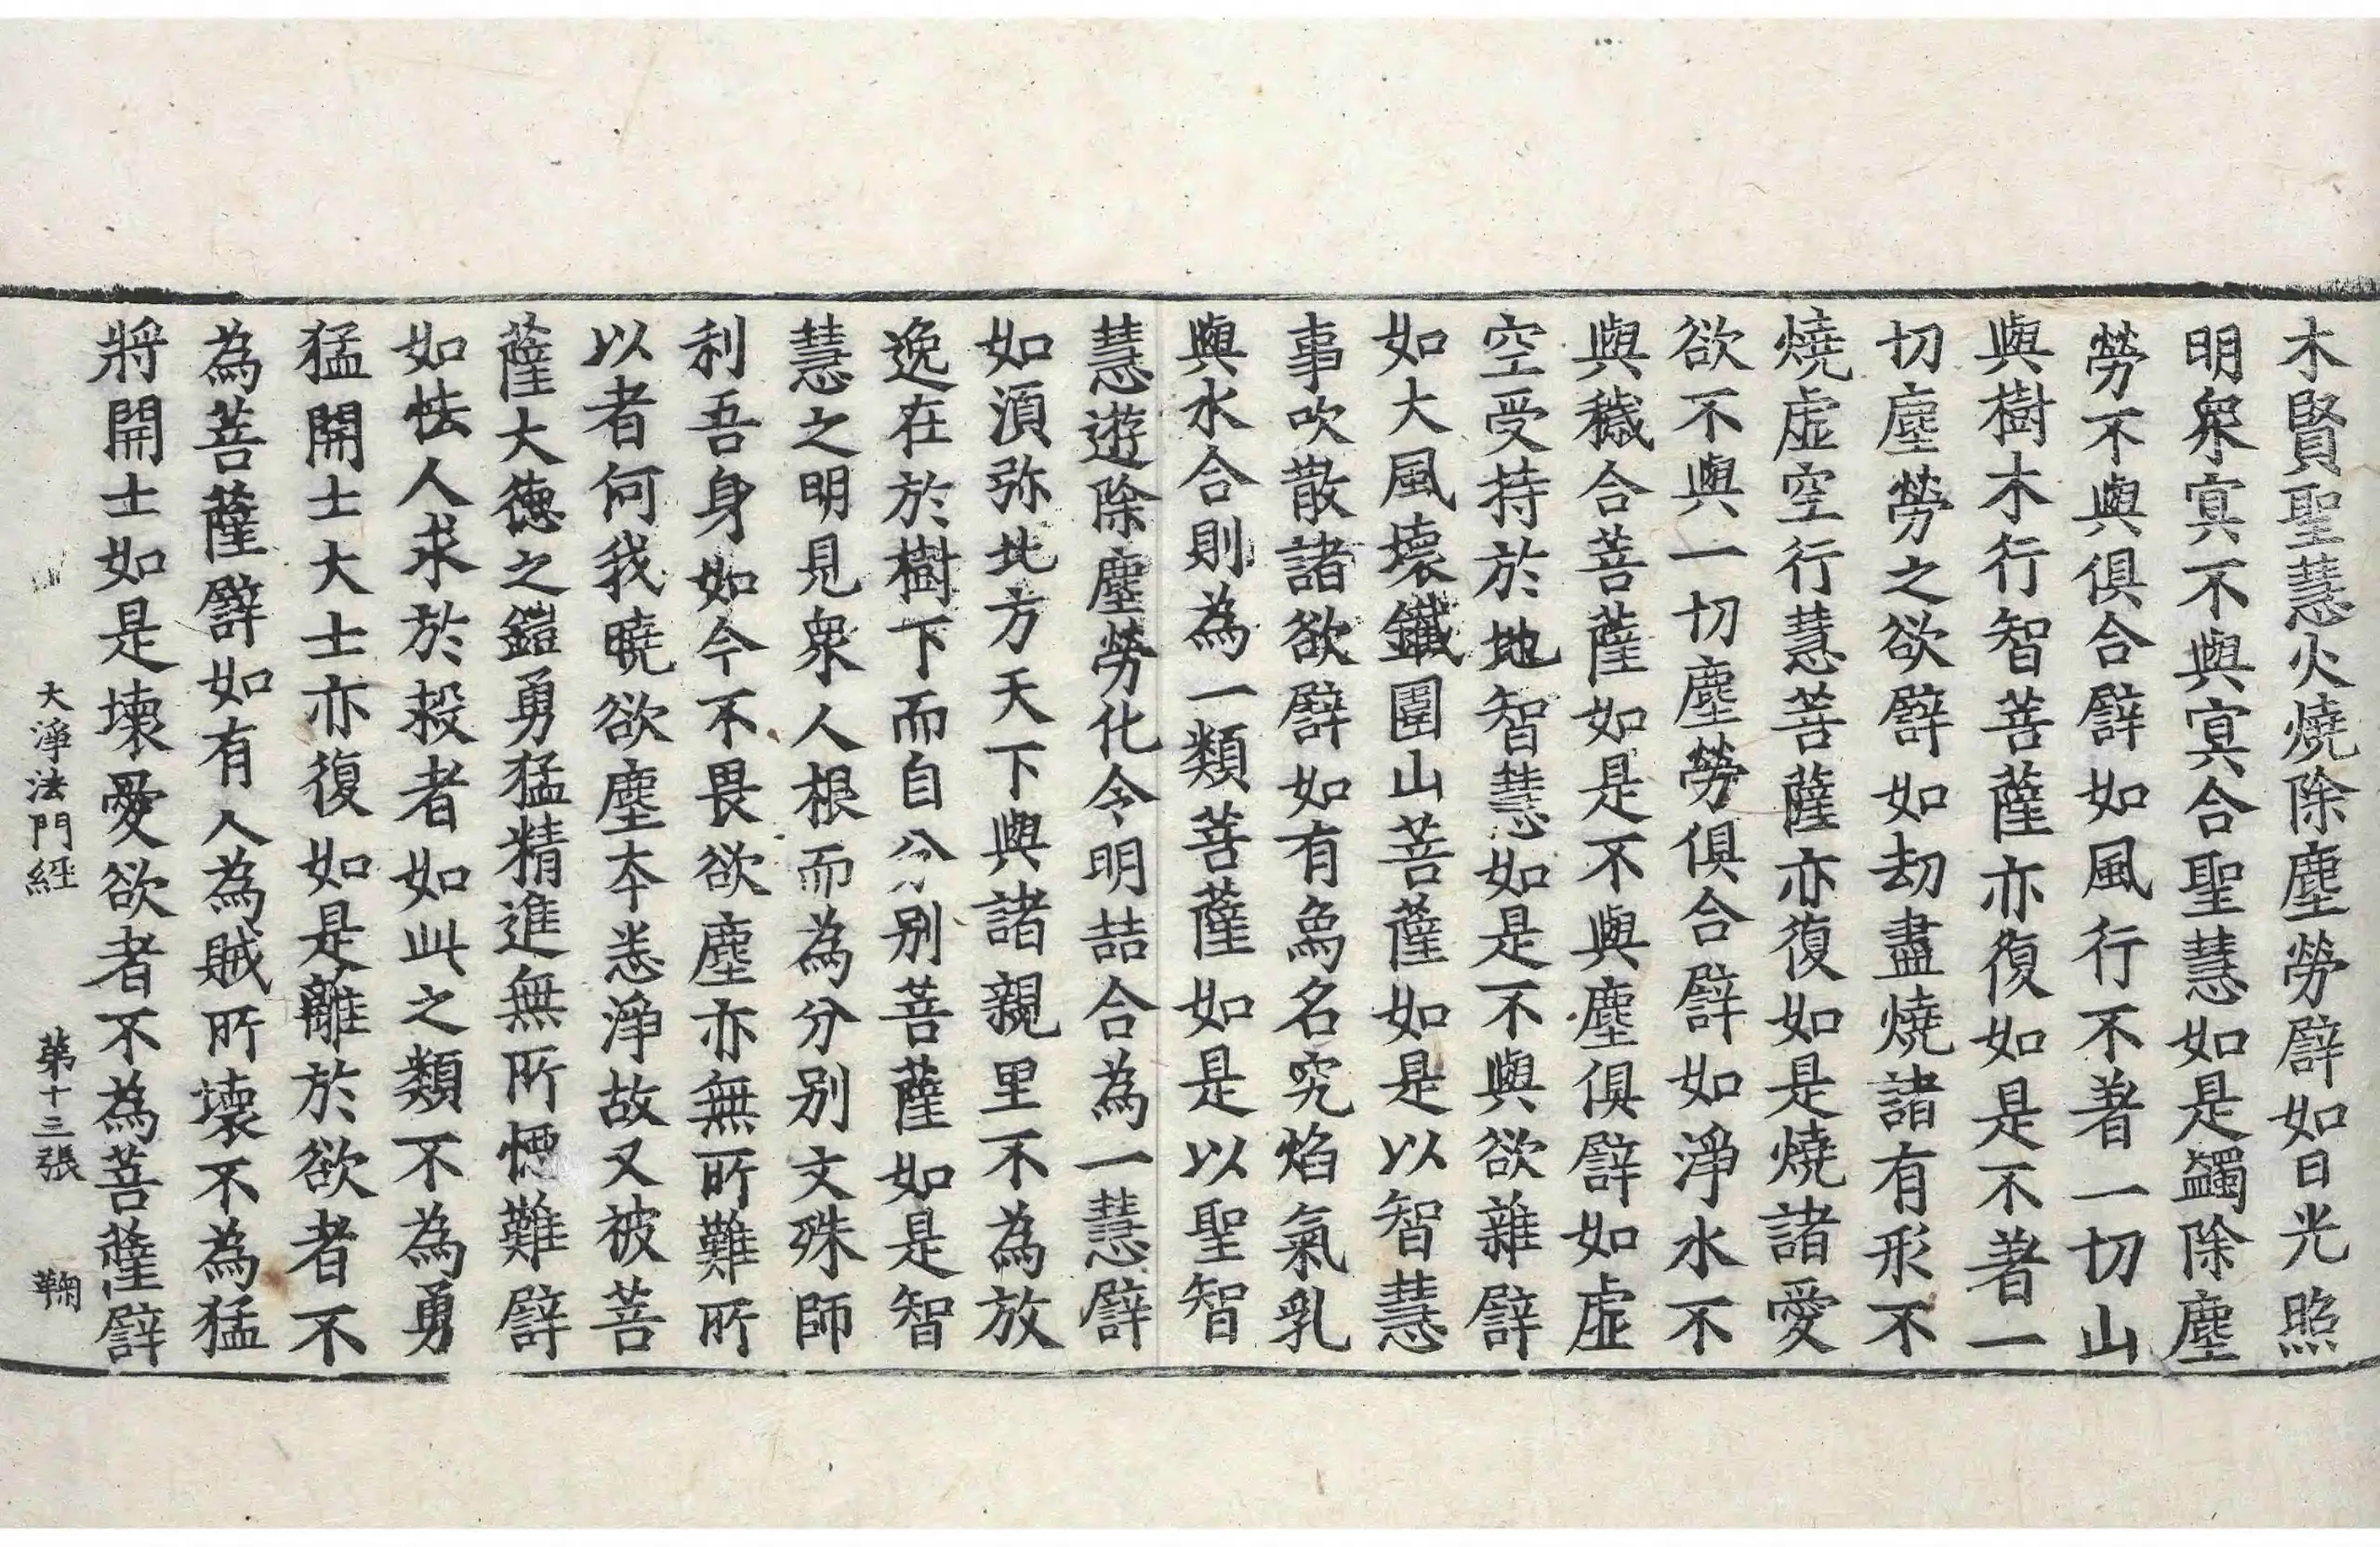 木賢聖慧火燒除塵勞譬如日光照
明衆冥不與冥合聖慧如是蠲除塵
勞不與俱合譬如風行不著一切山
與樹木行智菩薩亦復如是不著一
切塵勞之欲譬如劫盡燒諸有形不
燒虛空行慧菩薩亦復如是燒諸愛
欲不與一切塵勞俱合譬如淨水不
與穢合菩薩如是不與塵俱譬如虛
空受持於地智慧如是不與欲雜譬
如大風壞鐵圍山菩薩如是以智慧
事吹散諸欲譬如有鳥名究焰氣乳
與水合則為一類菩薩如是以聖智
慧遊除塵勞化令明喆合為一慧譬
如湏弥北方天下與諸親里不為放
逸在於樹下而自分别菩薩如是智
慧之明見衆人根而為分别文殊師
利吾身如今不畏欲塵亦無所難所
以者何我曉欲塵本恙淨故又被菩
薩大德之鎧勇猛精進無所難譬
如怯人求於殺者如此之類不為勇
猛開士大士亦復如是離於欲者不
為菩薩譬如有人為賊所壞不為猛
將開士如是壞愛欲者不為菩薩譬
大淨法門經 第十三張 鞠